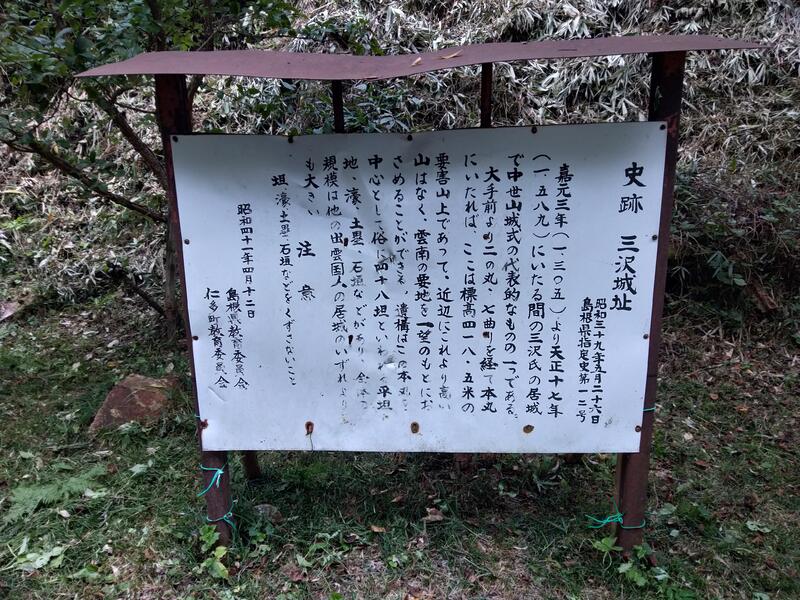 史跡 三沢城址
昭和三十九年五月二十六日
島根県指定史第一二号
嘉元三年(一三〇五)より天正十七年
(一五八九)にいたる間の三沢氏の居城
で中世山城式の代表的なものの一つである。
大手前より二の丸、七曲りを経て本丸
にいたれば、ここは標高四一八・五米の
要害山上であって。近辺にこれより高い
山はなく、雲南の要地を一望のもとにお
さめることができる 遺構はこの本丸を
中心として俗に四十八垣といわれ 平垣
地、濠、土塁、石垣などがあり 全体の
規模は他の出雲国人の居城のいずれより
も大きい
注意
垣、濠、土塁、石垣などをくずさないこと
昭和四十一年四月十二日
島根県教育委員会
仁多町教育委員会